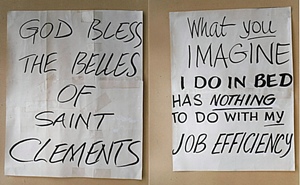 GOD BLESS
THE BELLES
OF
SAINT
CLEMENTS
What you
IMAGINE
I DO IN BED
HAS NOTHING
TO DO WITH MY
JOB EFFICIENCY